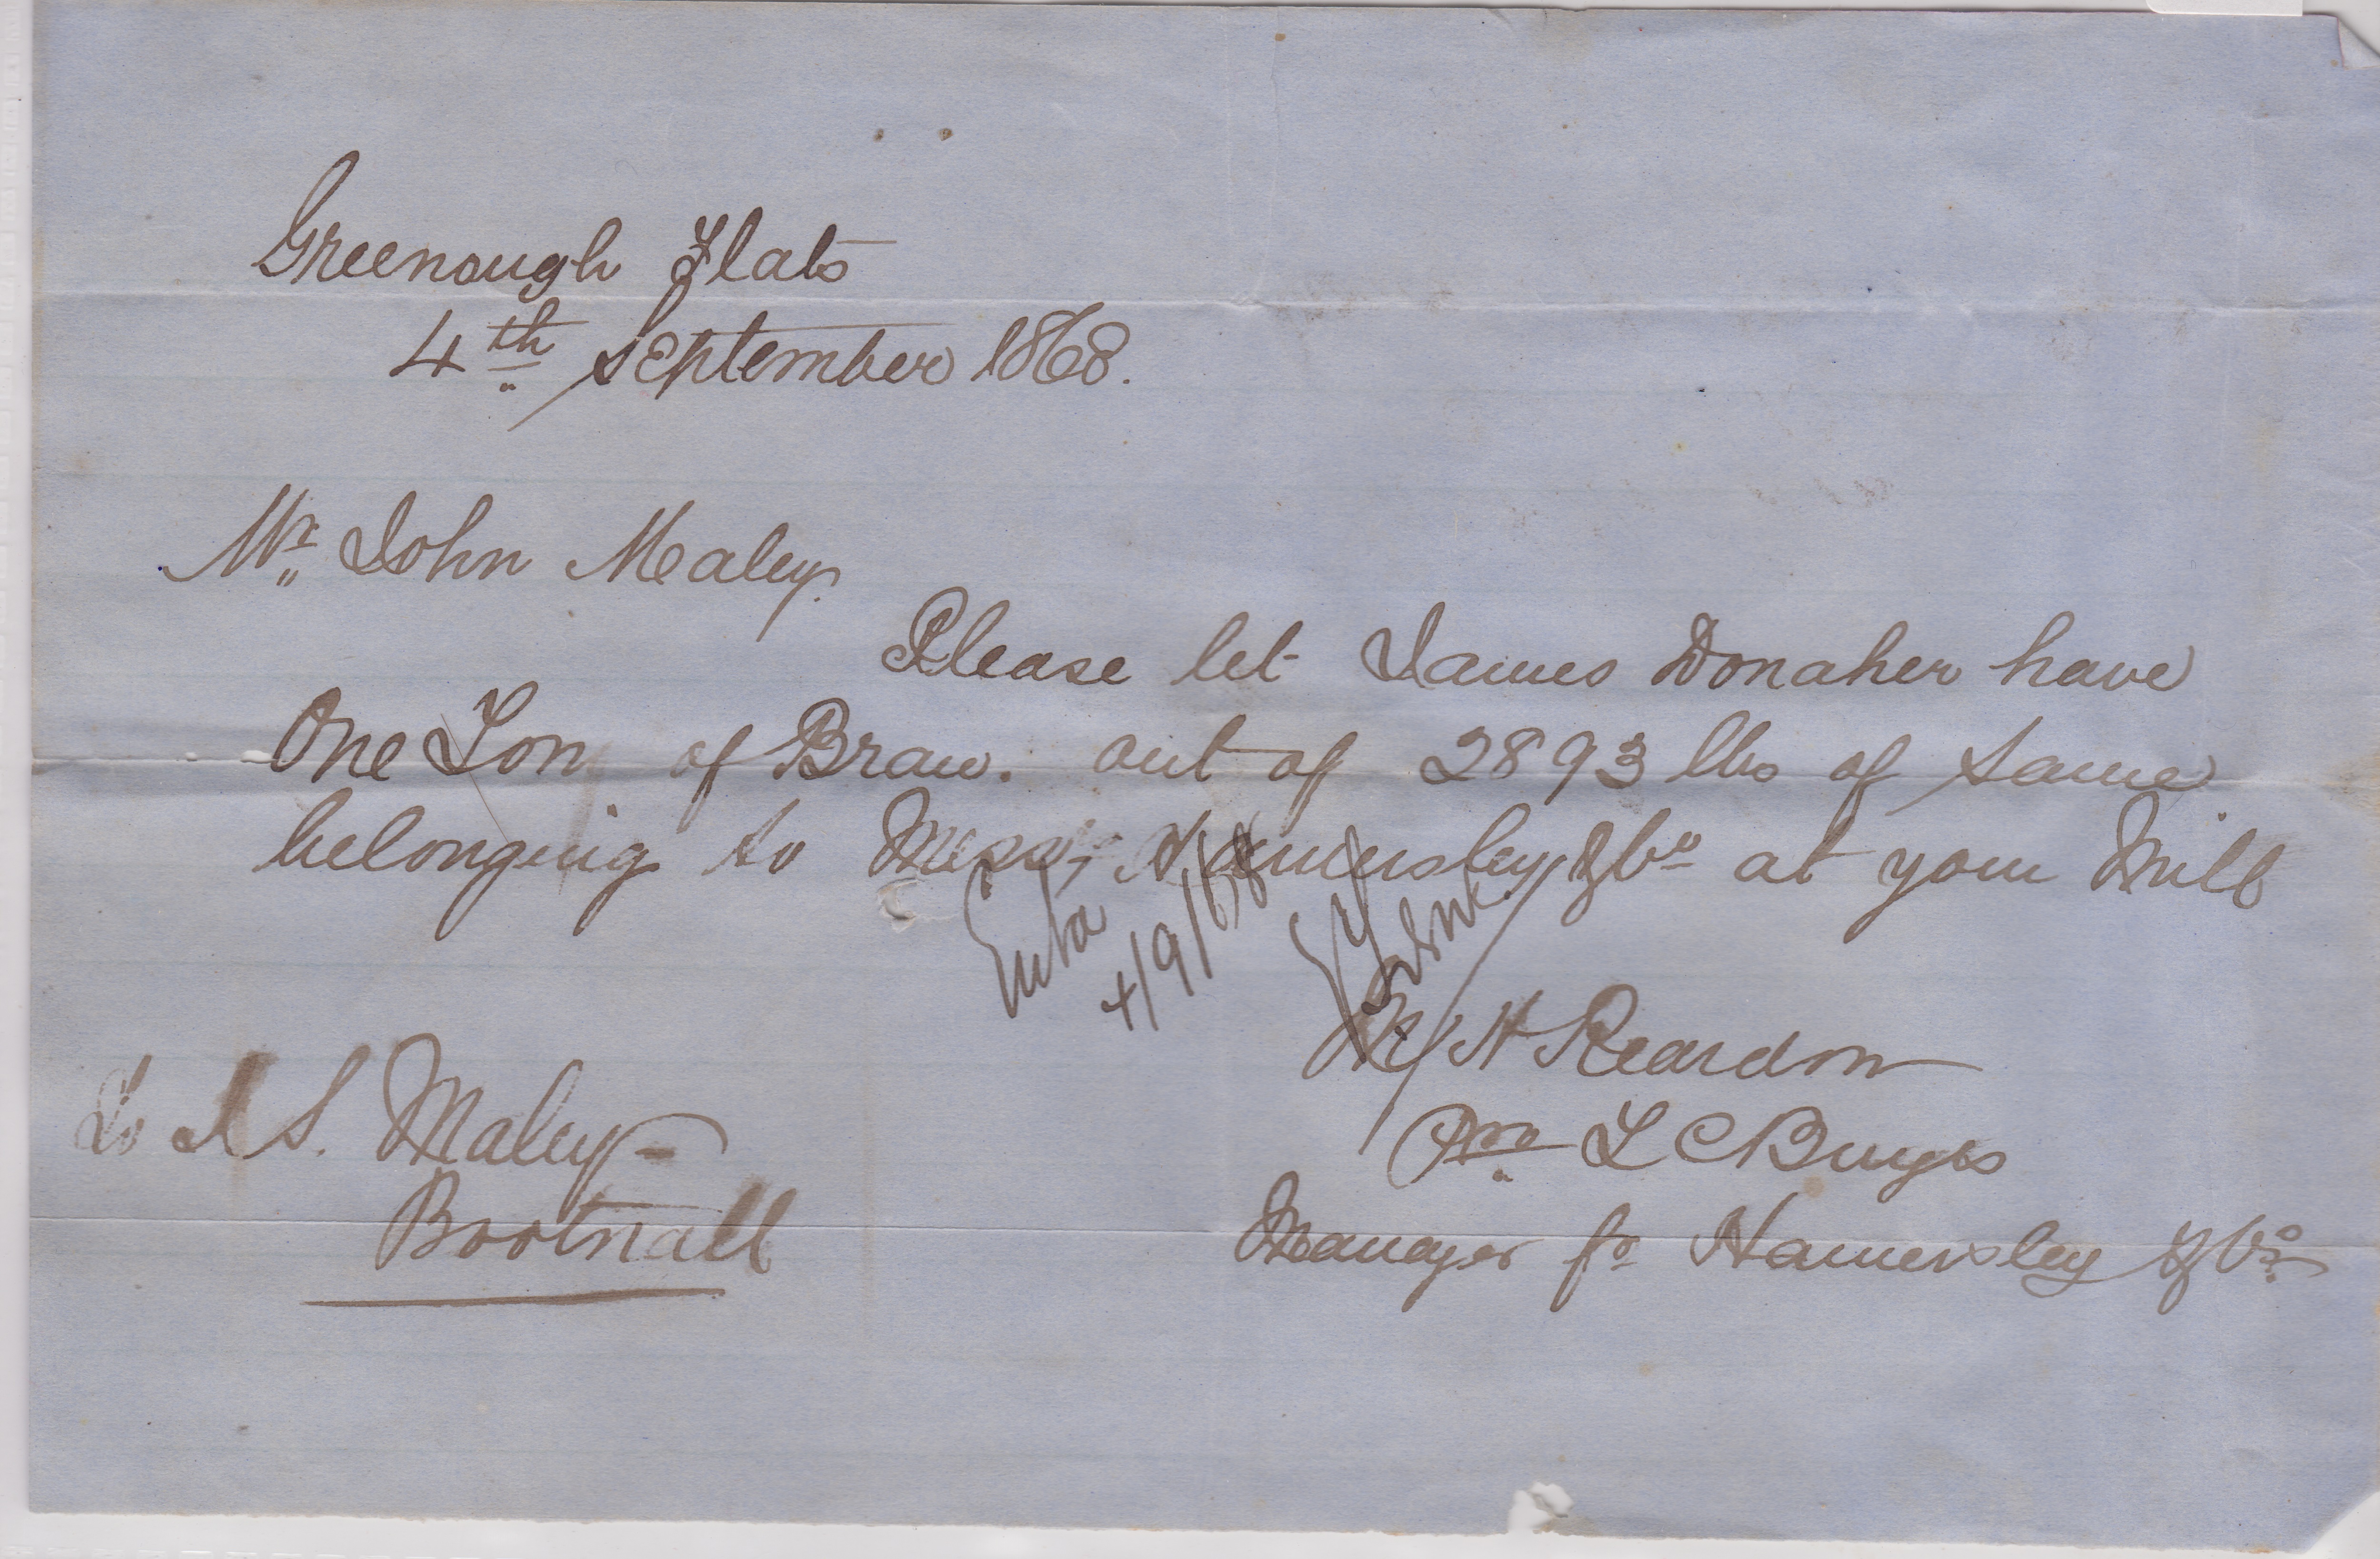 Greenough Flats
4th September 1868.
Mr John Maley.
Please let James Donaher have
One Ton of Bran. out of 2893 lbs of same
belonging to Messrs Hamersley & Co at your Mill
4/9/68
H Reardon
Pro L C Burges
Manager for Hamersley & Co
To J S. Maley
Bootnall